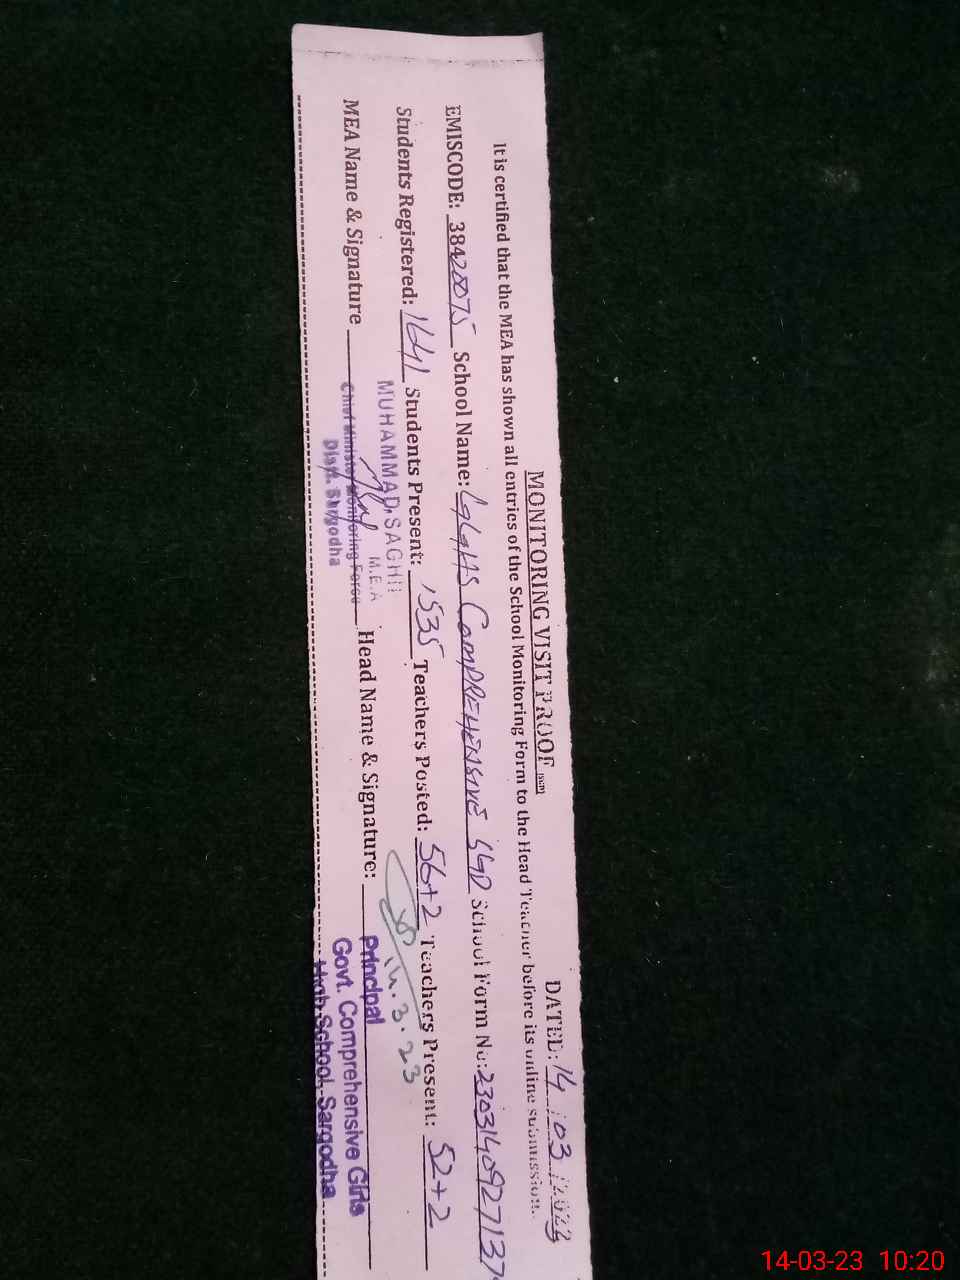 MONITORING VISIT PROOF
DATED: 14/03/2023
It is certified that the MEA has shown all entries of the School Monitoring Form to the Head Teacher before its online submission.
EMISCODE: 38420075 School Name: GGHS COMPREHENSIVE SGD School Form No: 230314092713
Students Registered: 1641 Students Present: 1535 Teachers Posted: 56+2 Teachers Present: 52+2
MUHAMMAD SAGHIR
M.E.A
14.3.23
MEA Name & Signature Head Name & Signature:
Chief Minister Monitoring Force
Distt. Sargodha
Principal
Govt. Comprehensive Girls
High School Sargodha
14-03-23 10:20